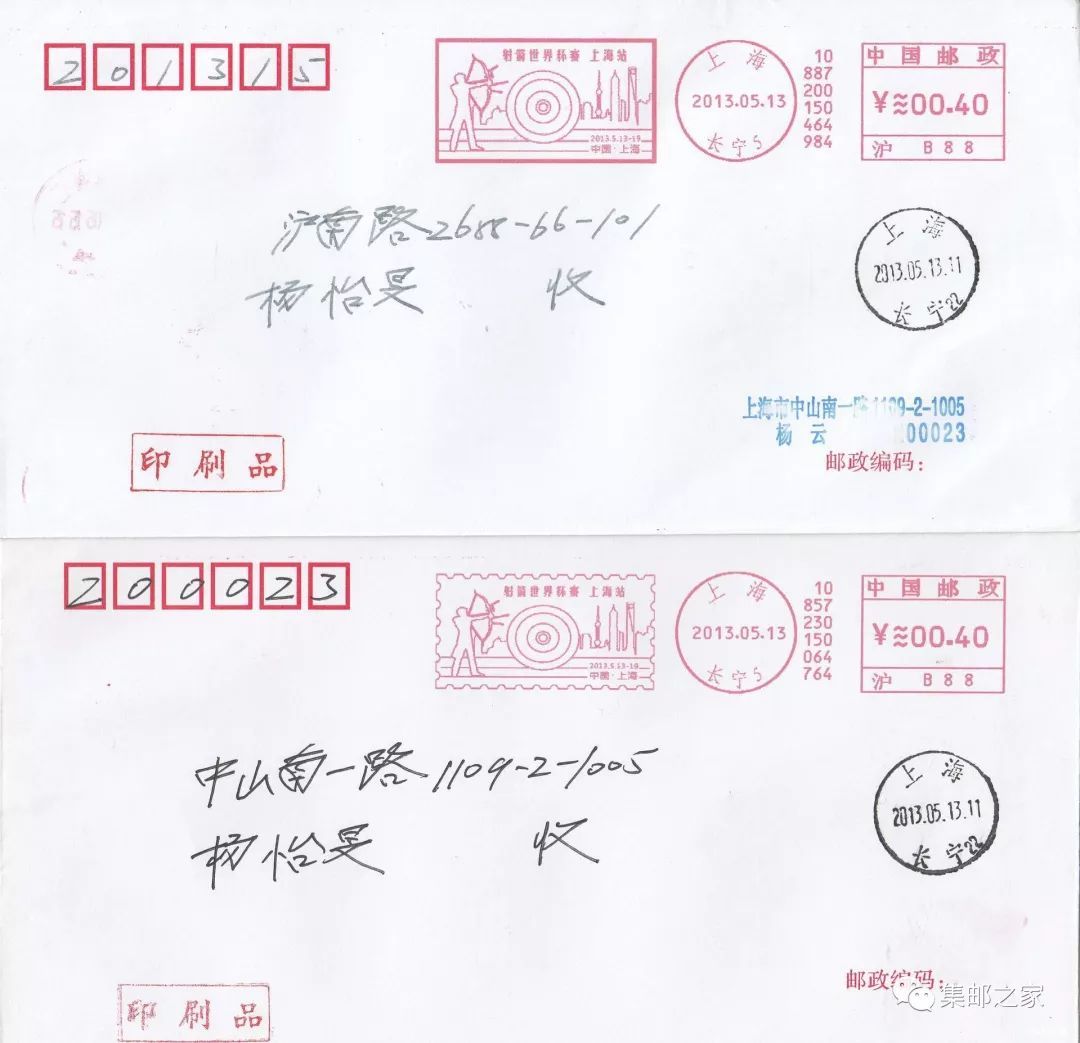 201315
射箭世界杯赛 上海站
2013.5.13-19
中国·上海
上海
2013.05.13
长宁5
10
887
200
150
464
984
中国邮政
¥≈00.40
沪 B88
沪南路2688-66-101
杨怡旻 收
上海
2013.05.13.11
长宁22
上海市中山南一路1109-2-1005
杨云 200023
邮政编码：
印刷品
200023
射箭世界杯赛 上海站
2013.5.13-19
中国·上海
上海
2013.05.13
长宁5
10
857
230
150
064
764
中国邮政
¥≈00.40
沪 B88
中山南一路1109-2-1005
杨怡旻 收
上海
2013.05.13.11
长宁22
邮政编码：
印刷品
集邮之家